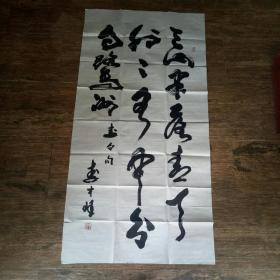 三山半落青天
外二水中分
白鷺洲 李白句